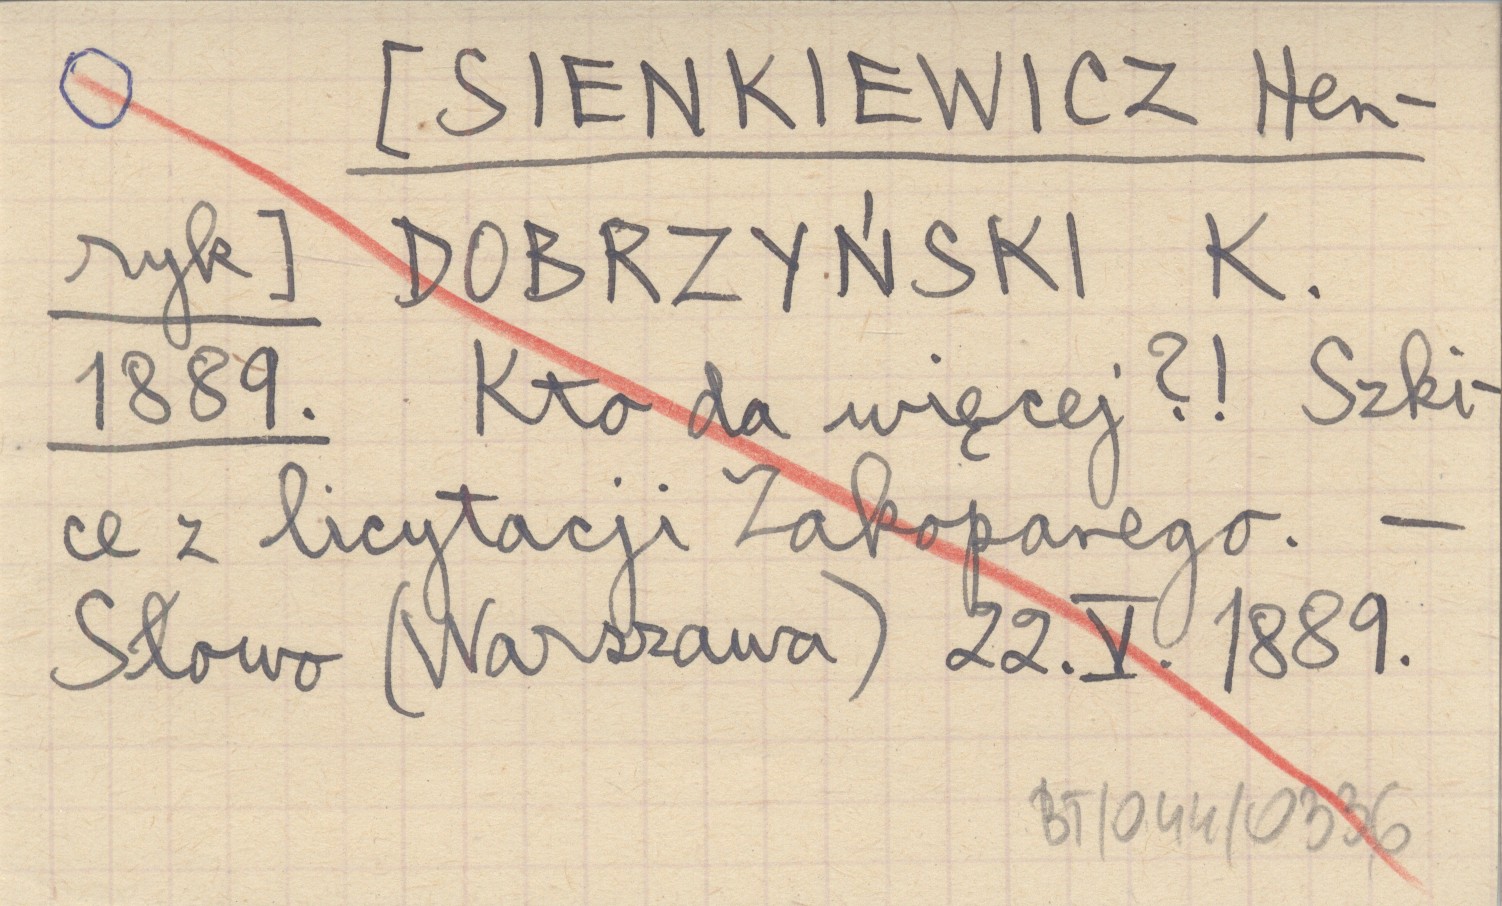 [SIENKIEWICZ Hen-
ryk] DOBRZYŃSKI K.
1889. Kto da więcej?! Szki-
ce z licytacji Zakopanego. —
Słowo (Warszawa) 22.V. 1889.
BT/044/0336